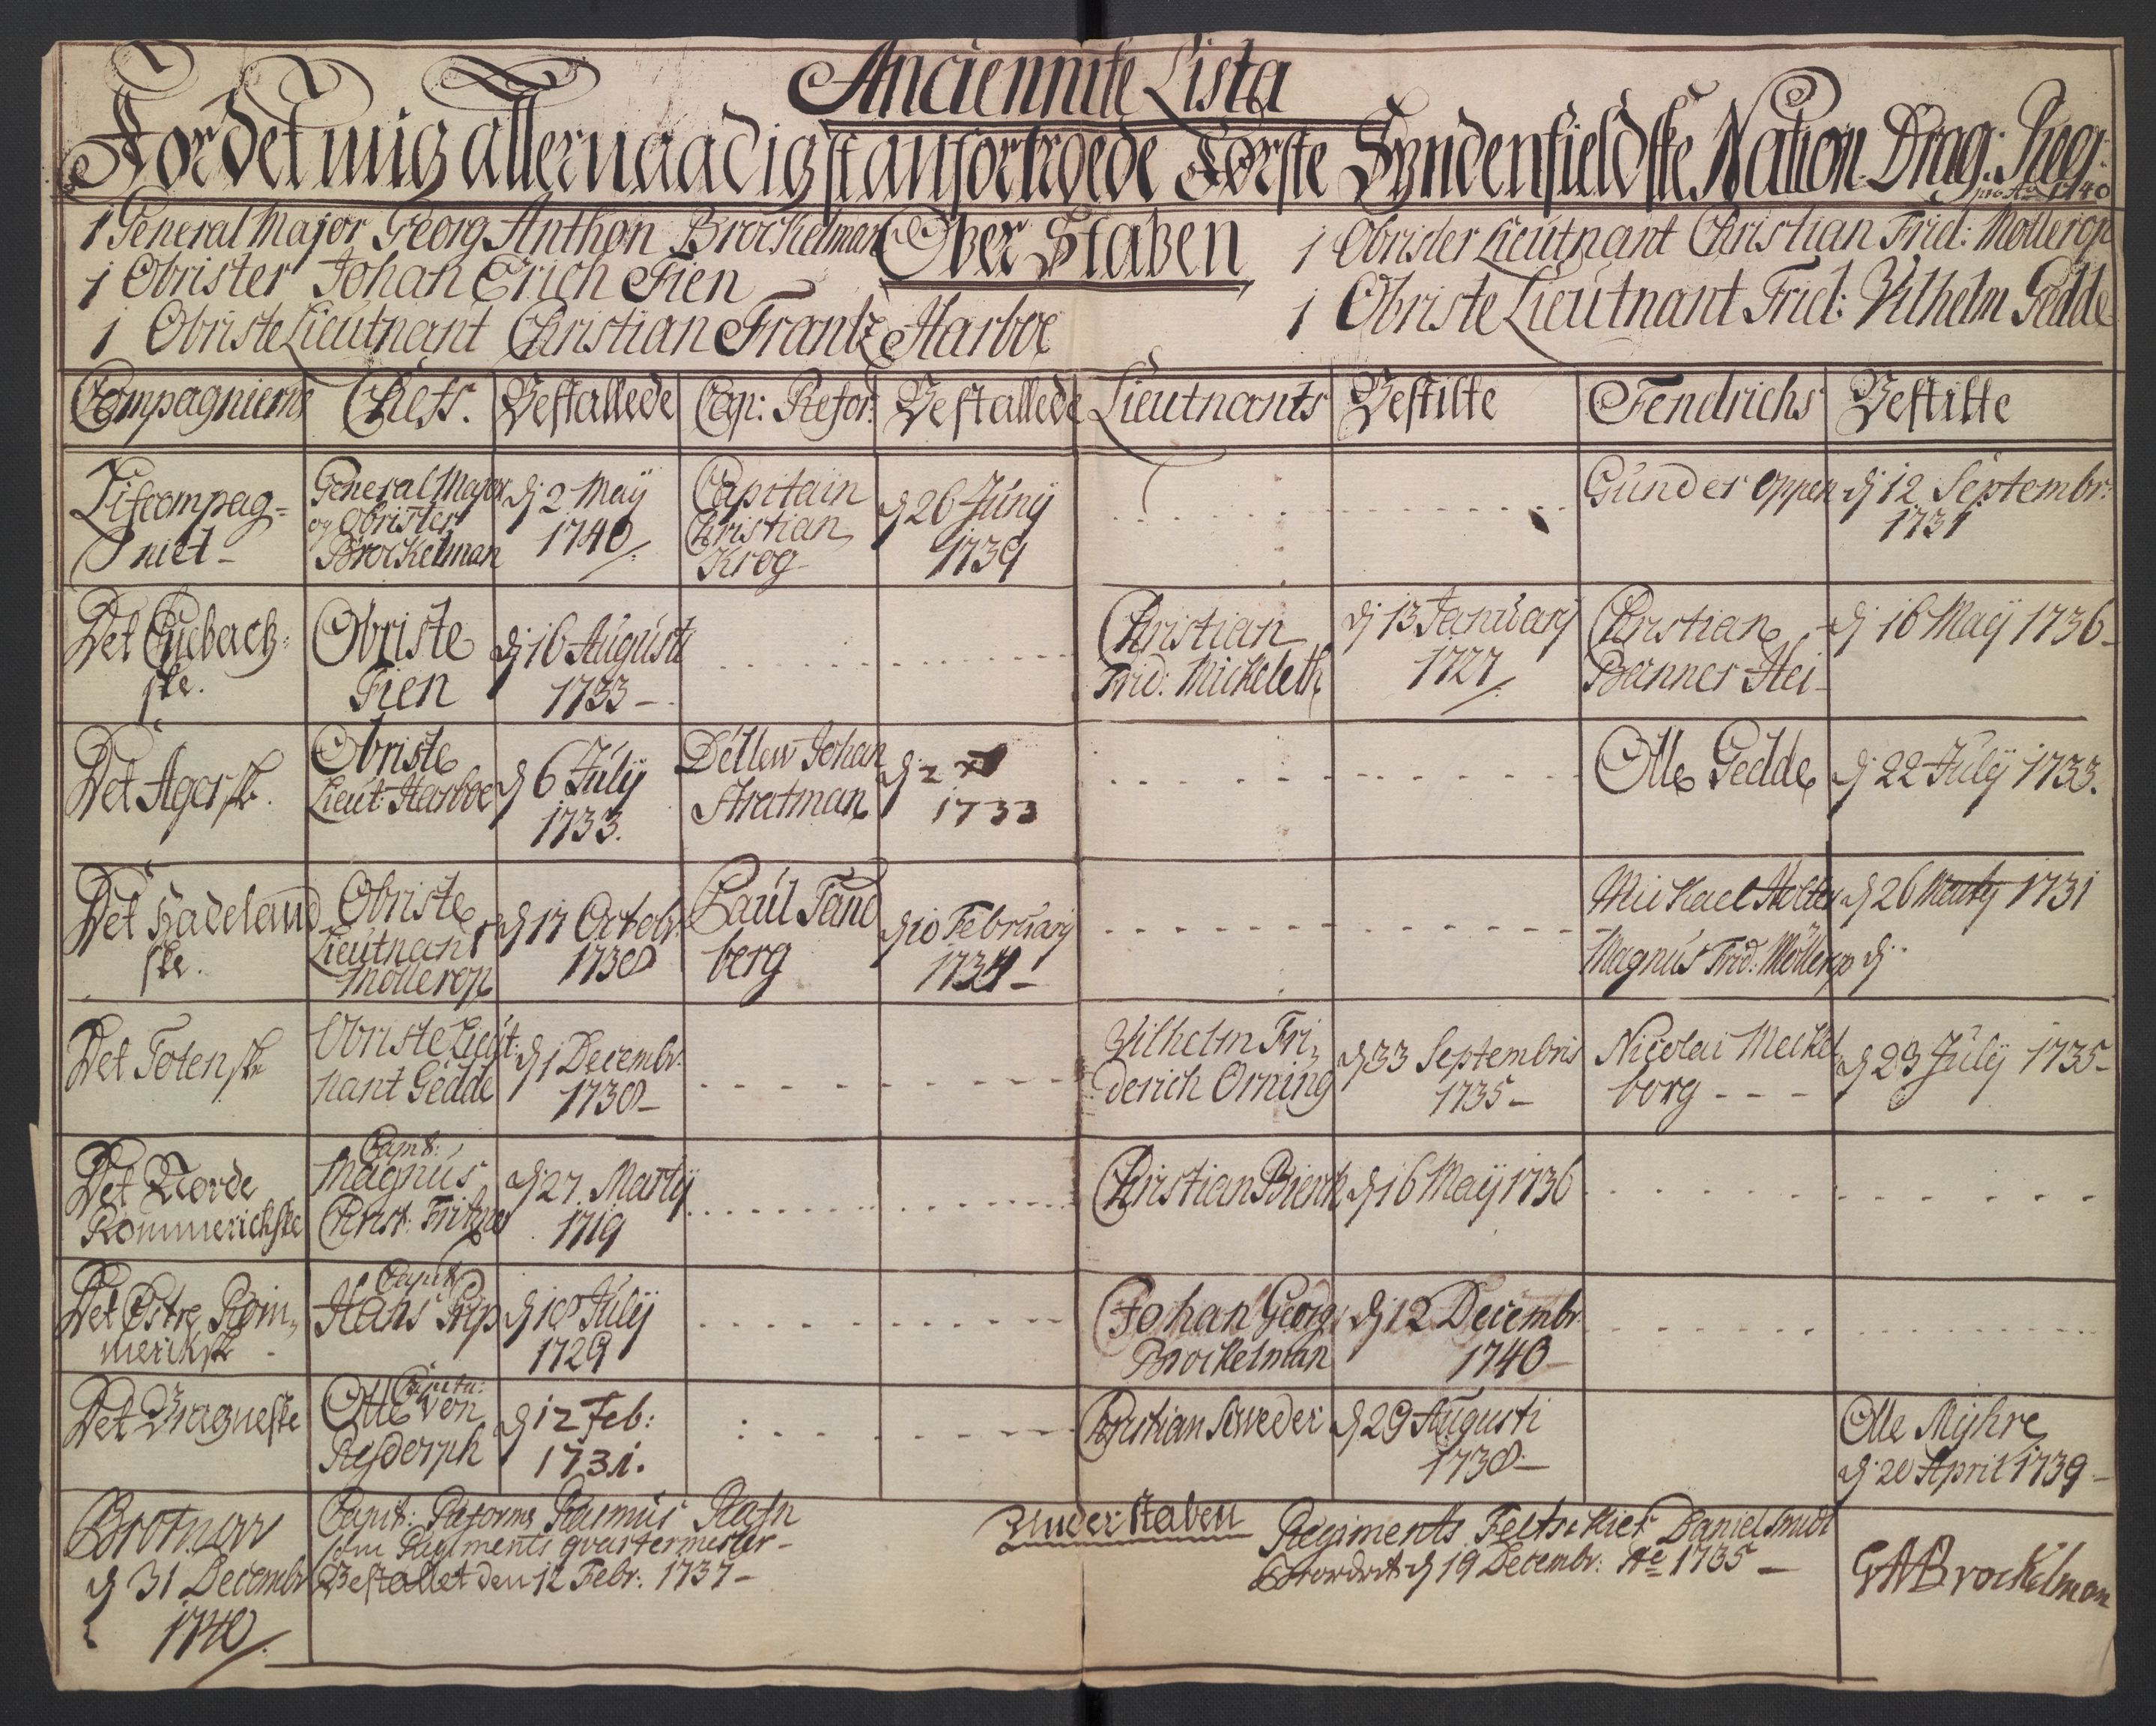 Anciennite Lista
For det mig allernaadigst anfortroede Første Syndenfieldske Nation. Drag: Regi:
pro Ao 1740
Ober Staben
1 General Major Georg Anthon Brockelman
1 Obrister Johan Erich Fien
1 Obriste Lieutnant Christian Frantz Harboe
1 Obrister Lieutnant Christian Frid: Møllerop
1 Obriste Lieutnant Frid: Vilhelm Gedde
Compagnierne Chefs. Bestallede Cap: Refor: Bestallede Lieutnants Bestilte Fendrichs Bestilte
Lifcompag=
niet -
General Major
og Obrister
Brockelman
d: 2 Maÿ
1740
Capitain
Christian
Krog
d 26 Junÿ
1739
Gunder Oppen
d: 12 Septembr:
1731
Det
ske.
Obriste
Fien
d: 16 Augusti
1733 -
Christian
Frid: Mickeleth
d: 13 January
1727
Christian
Banner Hei-
d: 16 Maÿ 1736-
Det Agerske.
Obriste
Lieut: Harboe
d 6 Julÿ
1733.
Detlew Johan
Stratman
d: 2
1733
Olle Gedde
d: 22 Julÿ 1733.
Det Hadeland
ske.
Obriste
Lieutnant
Møllerop
d 17 Octobr
1738
Paul Tand
berg
d 10 February
1734-
Michael Holter
d 26 Marty 1731
Magnus Frid: Møllerop d:
Det Totenske
Obriste Lieut:
nant Gedde
d 1 Decembr:
1738-
Vilhelm Fri,
derich Orning
d 33 Septembris
1735-
Nicolai Meckel
borg - - -
d 23 Julÿ 1735-
Det Nordre
Rommerichske
Capit:
Magnus
Christ: Fritzner
d: 27 Martÿ
1719
Christian Bierch
d 16 Maÿ 1736
Det Østre Rom,
merikske
Capit:
Hans Grip
d 18 Julÿ
1729
Johan Georg
Brockelman
d: 12 Decembr
1740
Det Vragneske
Capita:
Otto Von
Reÿdorph
d 12 Feb:
1731.
Christian Sweder
d 29 Augusti
1738-
Olle Mÿhre
d: 20 April 1739-
Brotnov
d 31 Decembr
1740
Capit: Reforme Rasmus Rafn
som Regiments quartermester-
Bestallet den 12 Febr: 1737-
Under staben
Regiments Feltskier Daniel Smidt
d 19 Decembr: Ao 1735-
GABrockelman